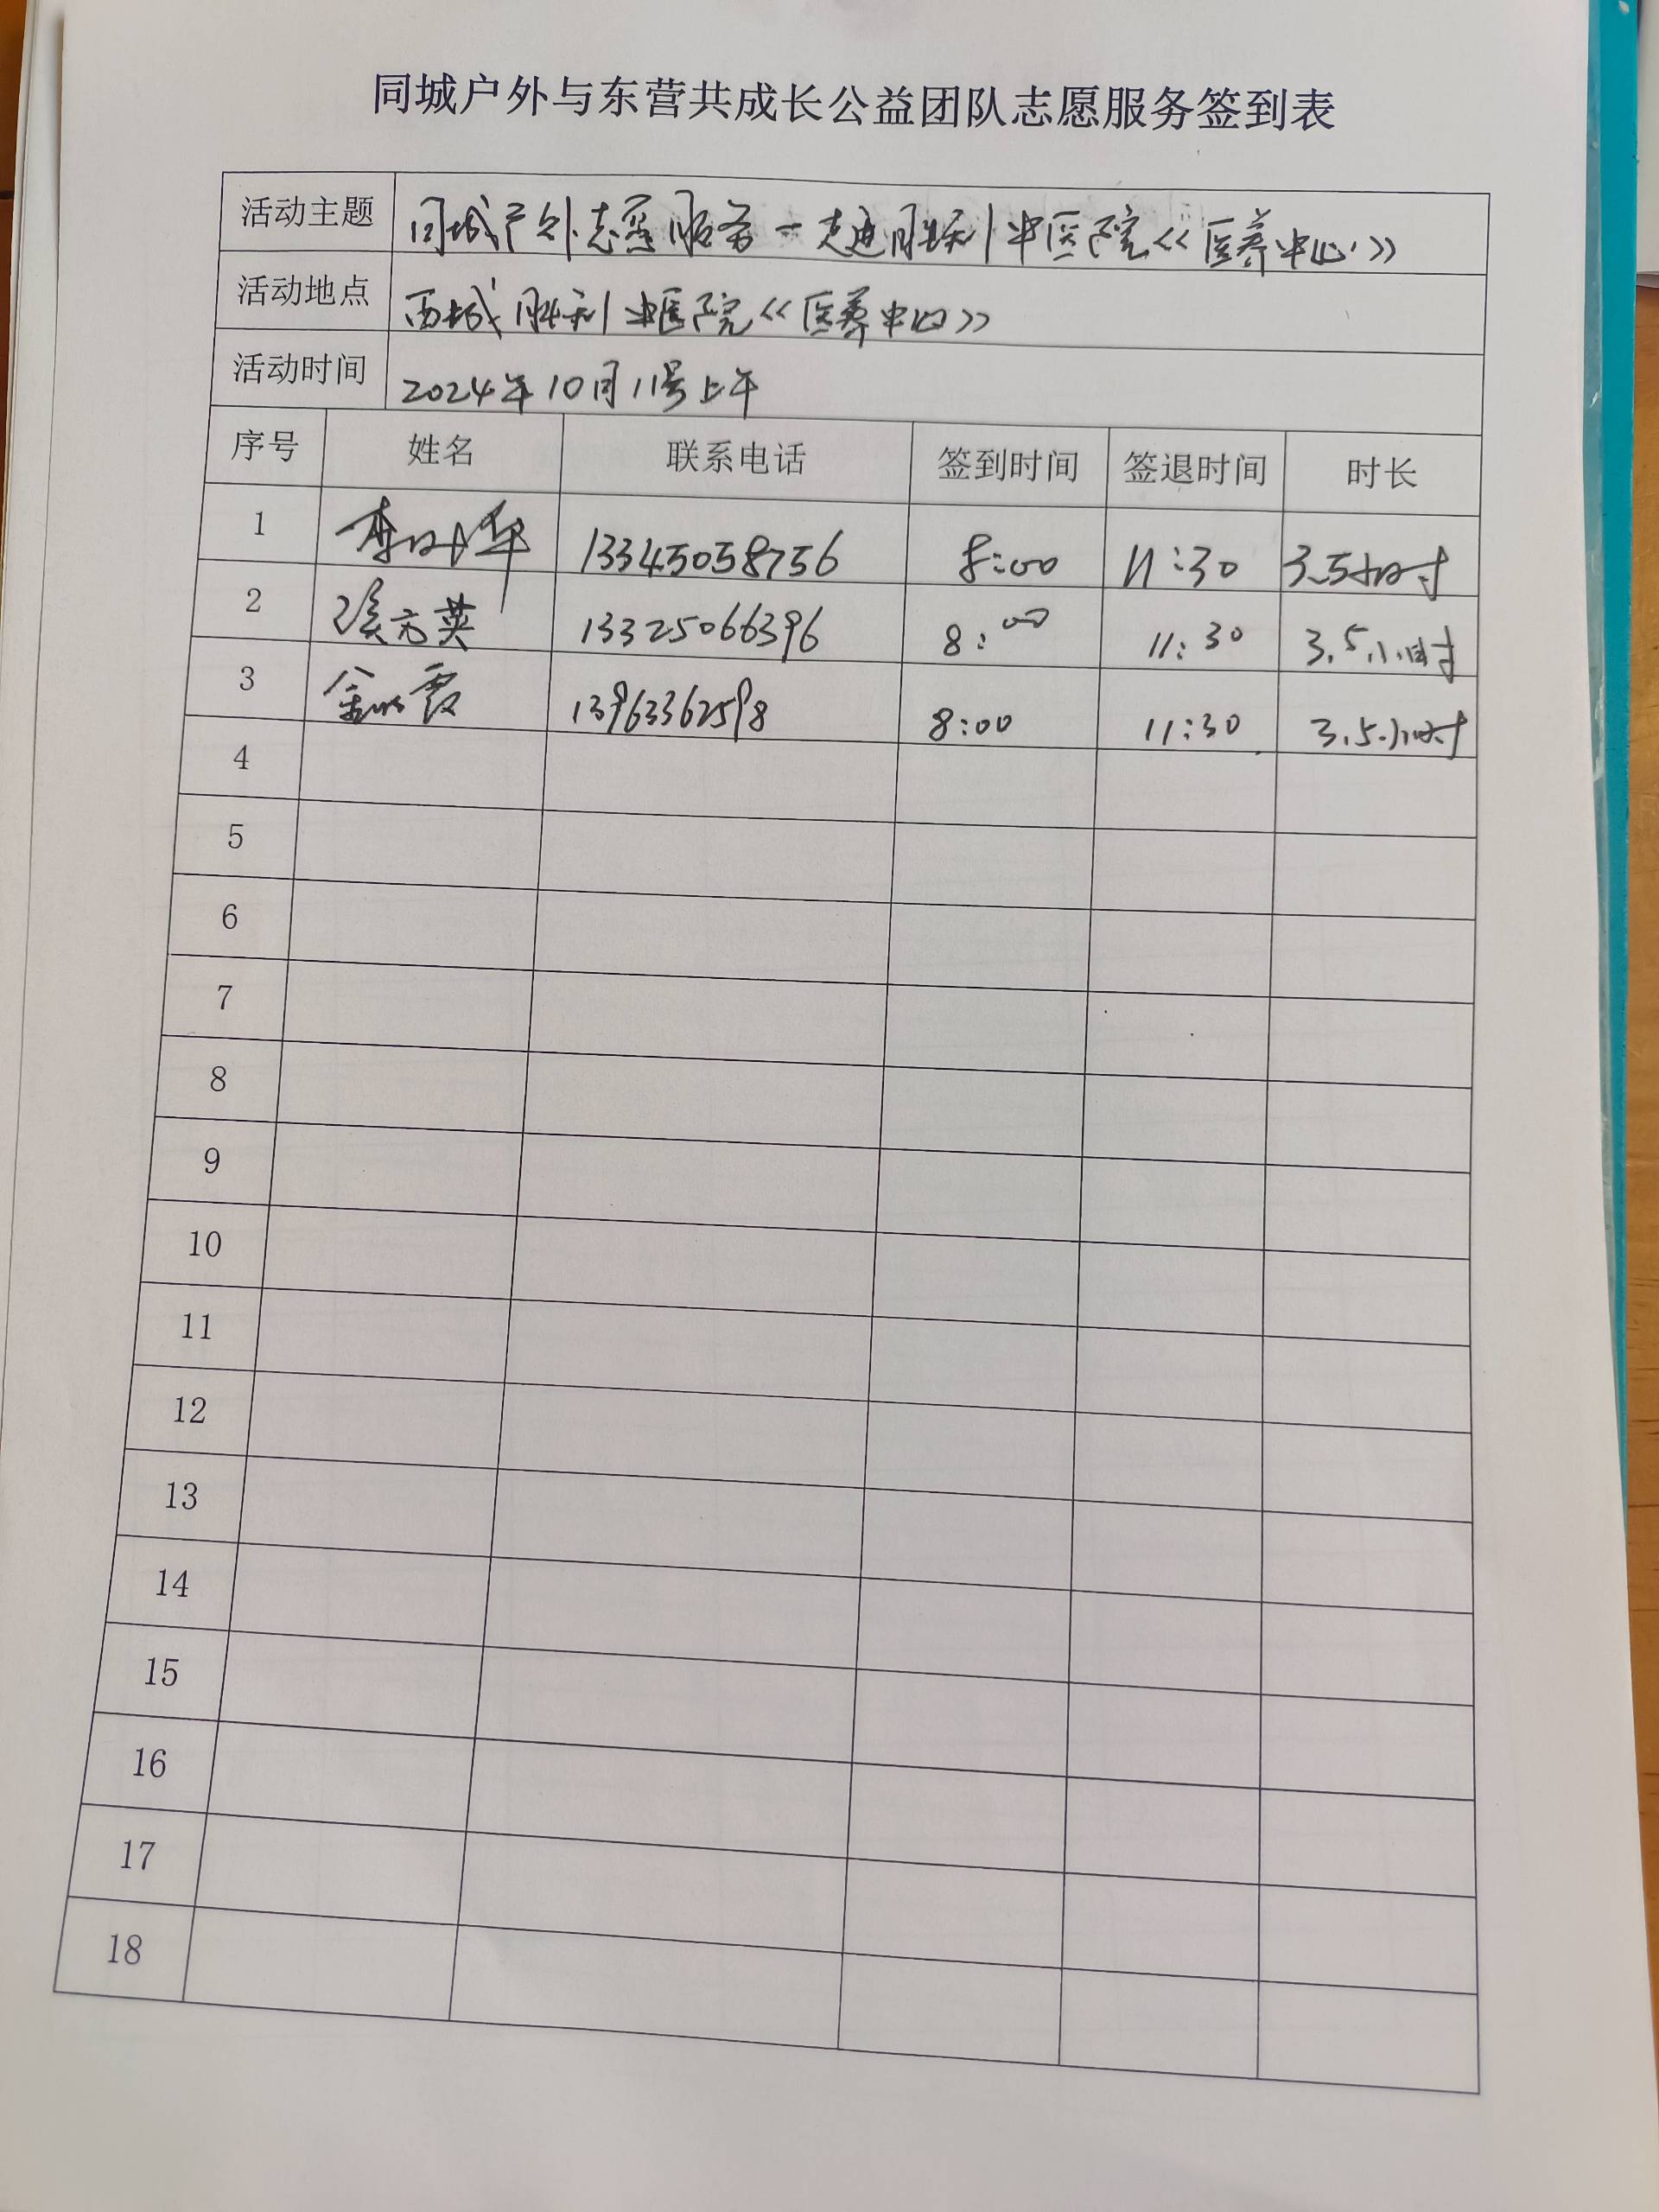 同城户外与东营共成长公益团队志愿服务签到表
活动主题 同城户外志愿服务-走进胜利中医院《医养中心》
活动地点 西城胜利中医院《医养中心》
活动时间 2024年10月11号上午
序号 姓名 联系电话 签到时间 签退时间 时长
1 李时华 13345058756 8:00 11:30 3.5小时
2 方英 13325066396 8:00 11:30 3.5小时
3 金 霞 13963362598 8:00 11:30 3.5小时
4
5
6
7
8
9
10
11
12
13
14
15
16
17
18